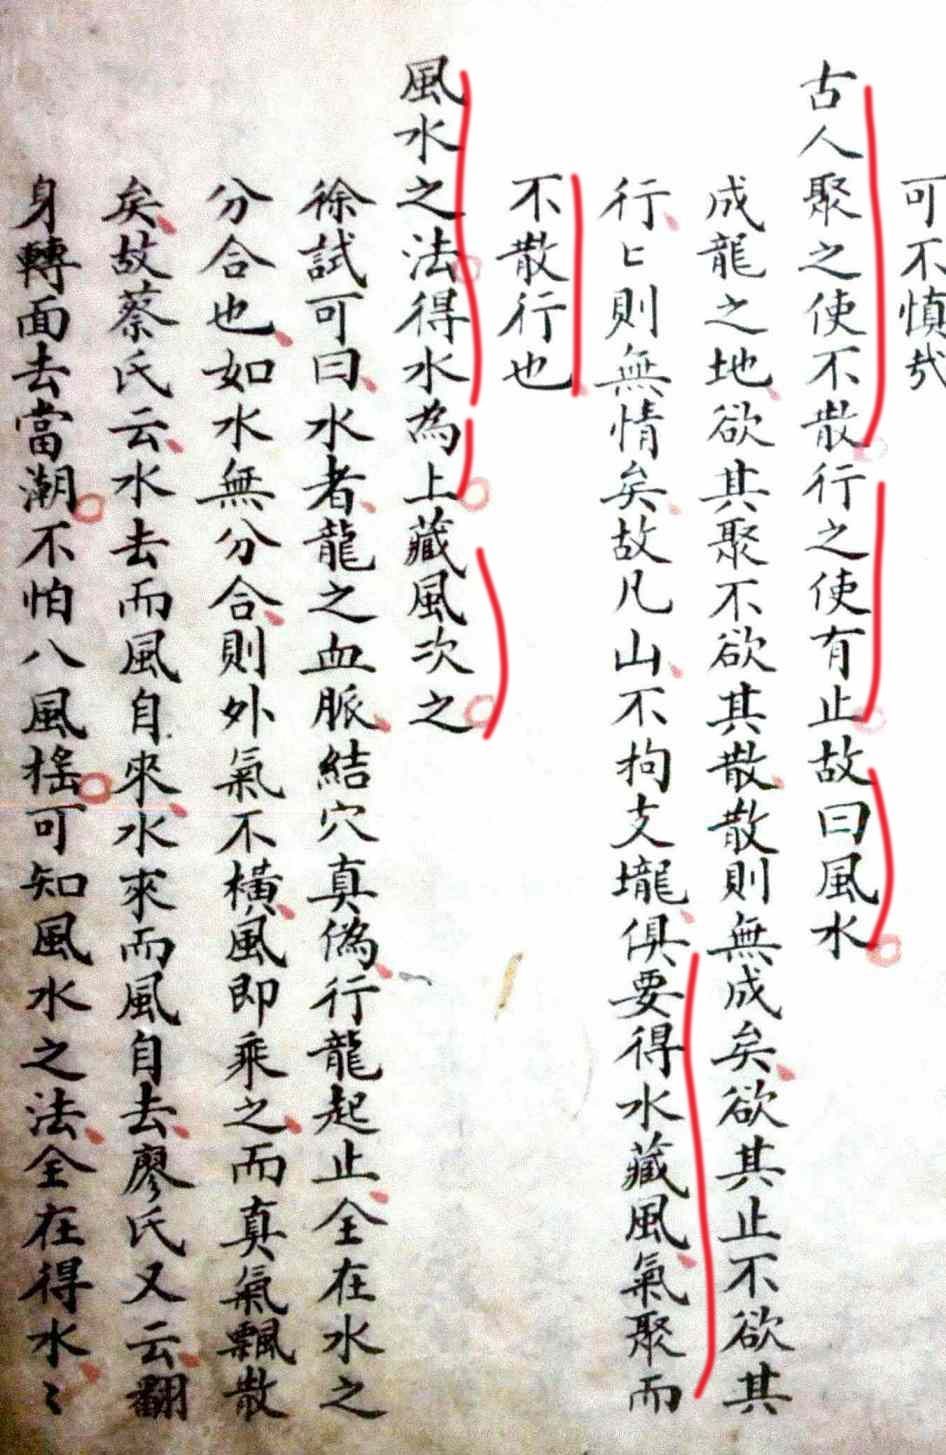 可不慎哉
古人聚之使不散行之使有止故曰風水
成龍之地欲其聚不欲其散散則無成矣欲其止不欲其
行匕則無情矣故凡山不拘支壠俱要得水藏風氣聚而
不散行也
風水之法得水為上藏風次之
徐試可曰水者龍之血脈結穴真偽行龍起止全在水之
分合也如水無分合則外氣不橫風即乘之而真氣飄散
矣故蔡氏云水去而風自來水來而風自去廖氏又云翻
身轉面去當潮不怕八風搖可知風水之法全在得水〻